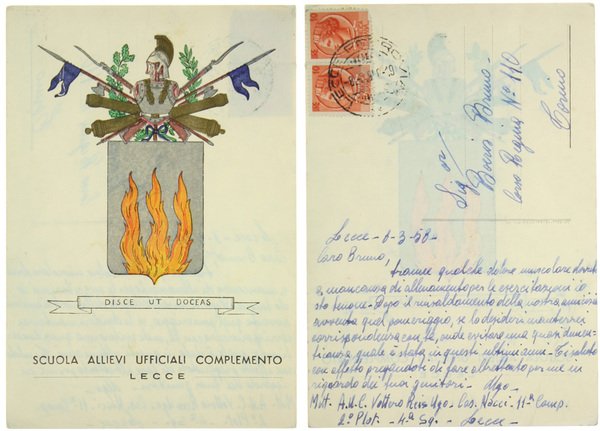 DISCE UT DOCEAS
SCUOLA ALLIEVI UFFICIALI COMPLEMENTO
LECCE
LECCE
Sig.
Bruno
Corso Regina Nº 110
Torino
Lecce - 8-3-58-
Caro Bruno,
tranne qualche dolore muscolare dovuto
a mancanza di allenamento per le esercitazioni io
sto benone. Dopo il rinsaldamento della nostra amicizia
avvenuta quel pomeriggio, se lo desideri manterrei
corrispondenza con te, onde evitare una quasi dimen-
ticanza quale è stata in questi ultimi anni. Ti saluto
con affetto pregandoti di fare altrettanto per me in
riguardo dei tuoi genitori. Ugo
Mitt. A.U.C. Vottero Ugo - Cas. Nacci - 11ª Comp.
2º Plot. - 4ª Sq. - Lecce -